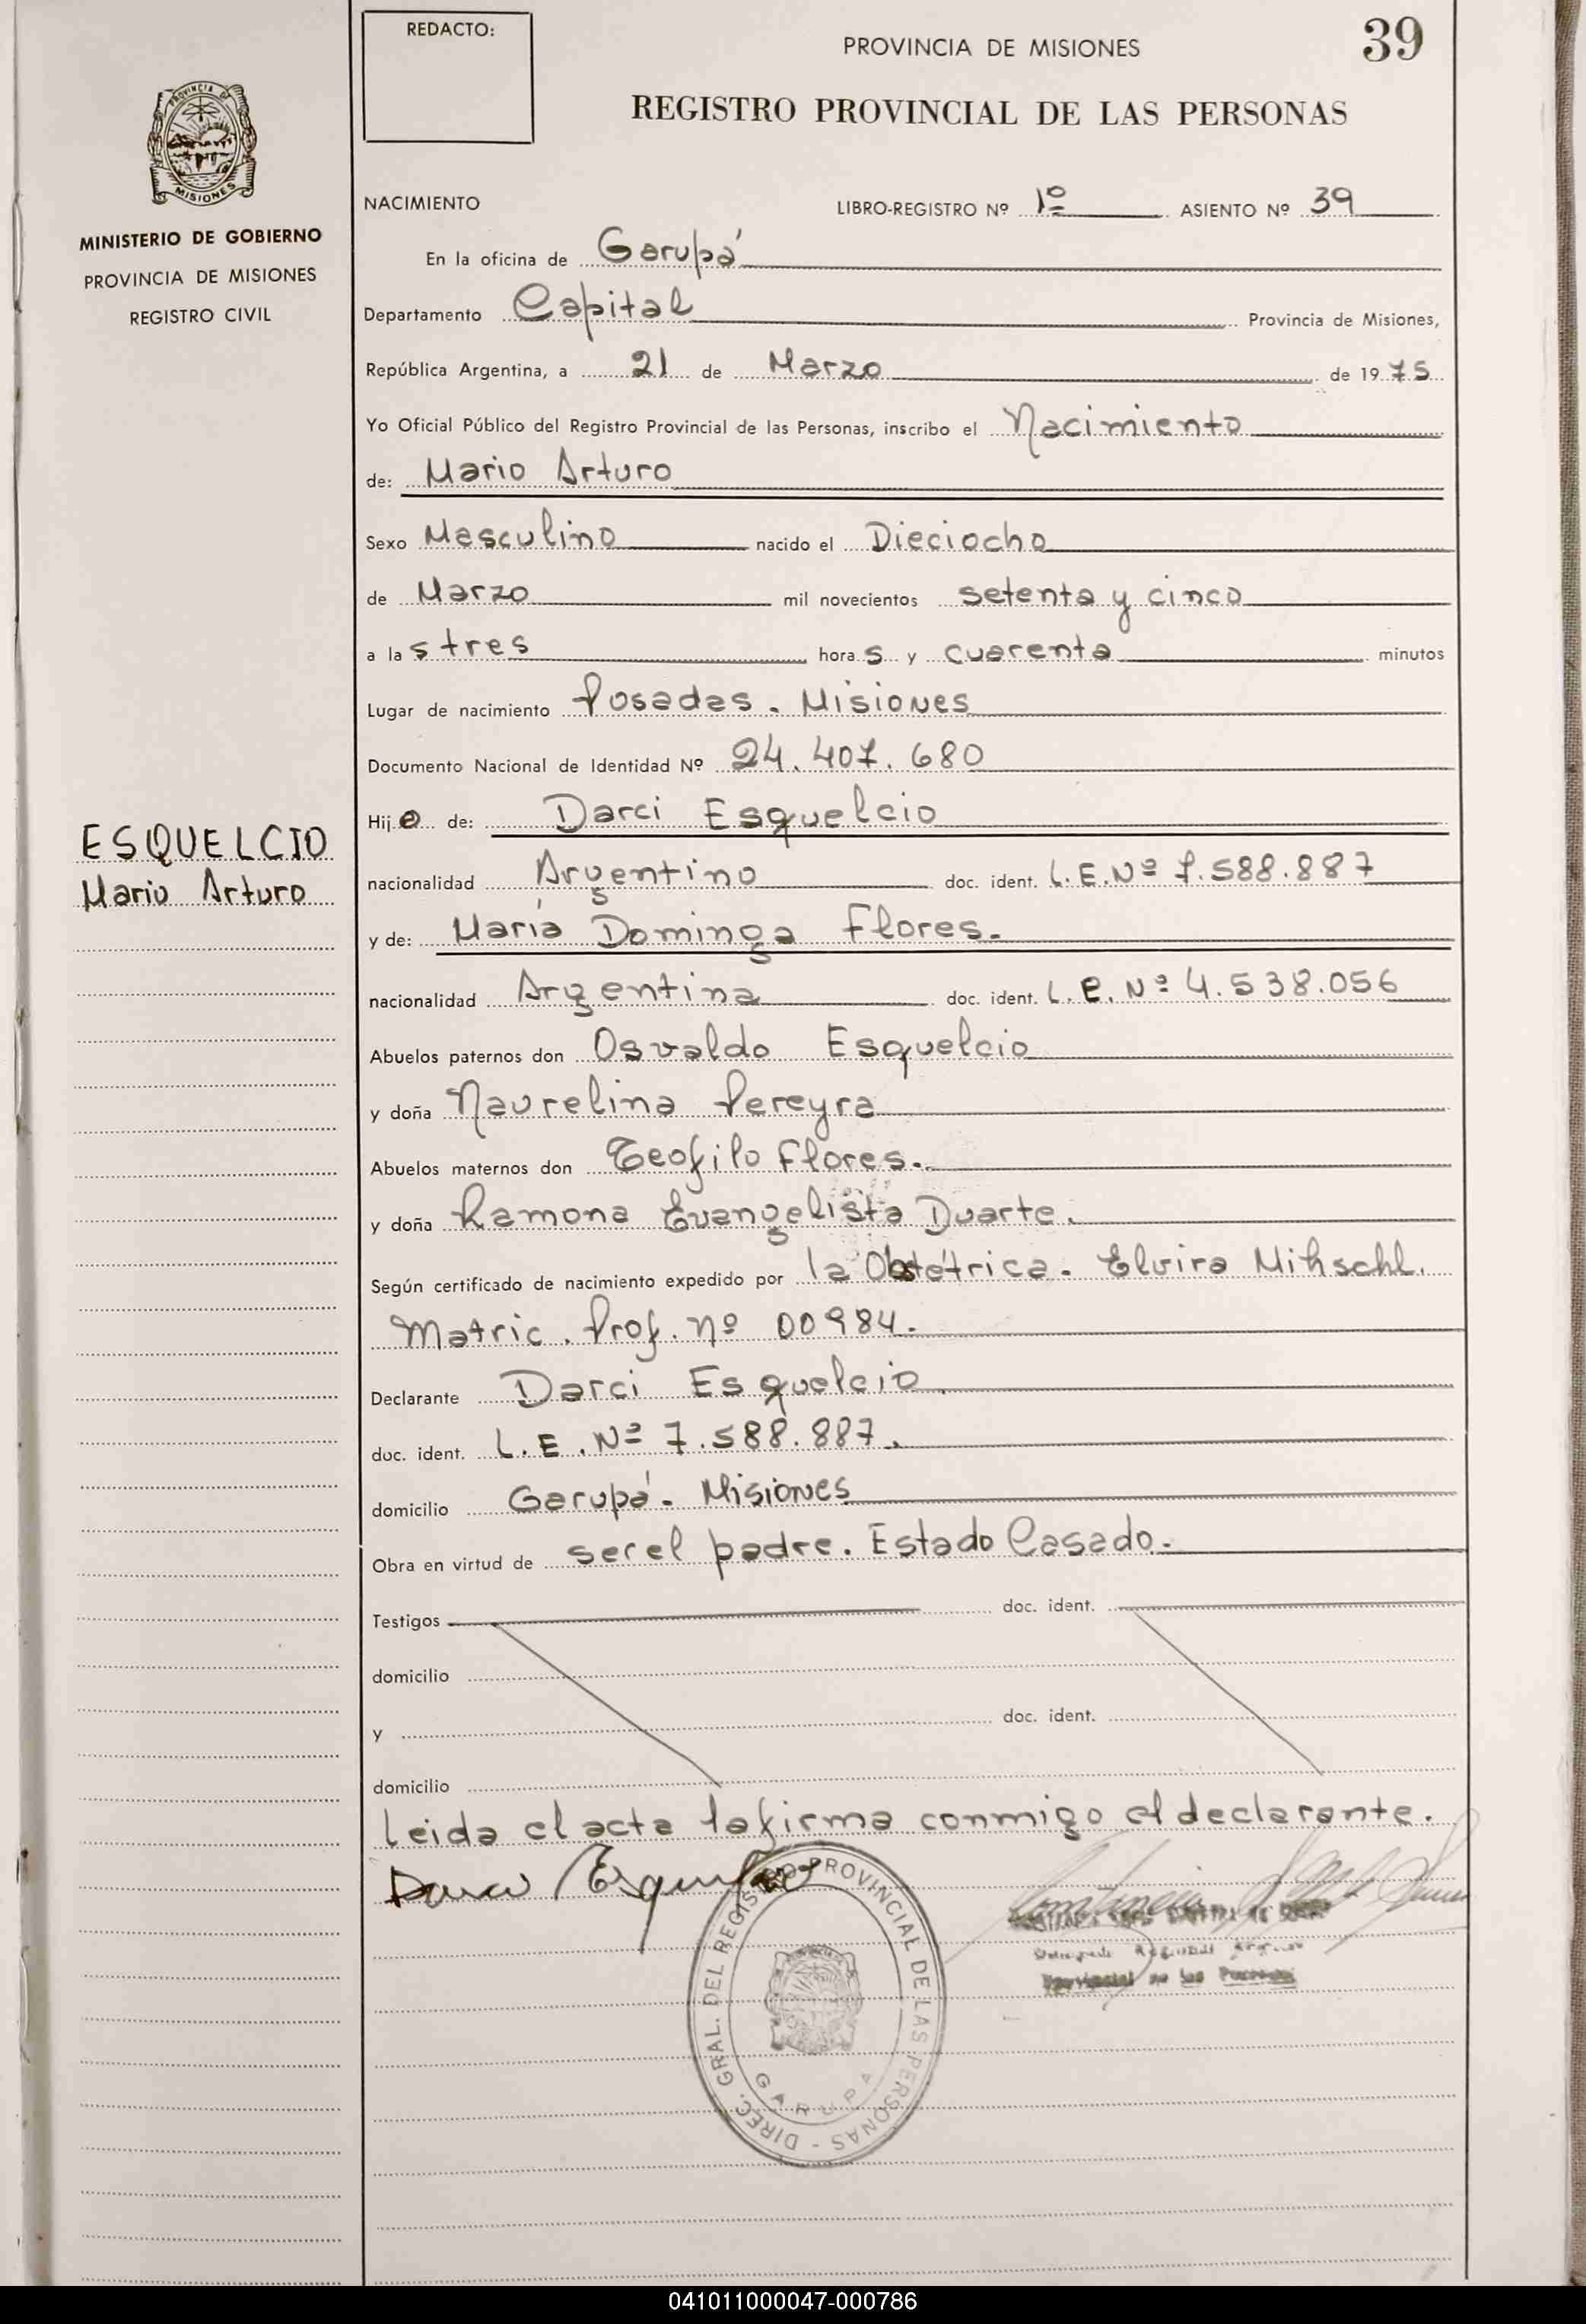 REDACTO:
PROVINCIA DE MISIONES
39
REGISTRO PROVINCIAL DE LAS PERSONAS
PROVINCIA DE
MISIONES
MINISTERIO DE GOBIERNO
PROVINCIA DE MISIONES
REGISTRO CIVIL
NACIMIENTO
LIBRO-REGISTRO Nº 1º ASIENTO Nº 39
En la oficina de Garupá
Departamento Capital Provincia de Misiones,
República Argentina, a 21 de Marzo de 1975
Yo Oficial Público del Registro Provincial de las Personas, inscribo el Nacimiento
de: Mario Arturo
Sexo Masculino nacido el Dieciocho
de Marzo mil novecientos setenta y cinco
a las tres horas y cuarenta minutos
Lugar de nacimiento Posadas. Misiones
Documento Nacional de Identidad Nº 24.407.680
Hijo de: Darci Esquelcio
ESQUELCIO
Mario Arturo
nacionalidad Argentino doc. ident. L.E.Nº 7.588.887
y de: María Dominga Flores.
nacionalidad Argentina doc. ident. L.E.Nº 4.538.056
Abuelos paternos don Osvaldo Esquelcio
y doña Naurelina Pereyra
Abuelos maternos don Teofilo Flores.
y doña Ramona Evangelista Duarte.
Según certificado de nacimiento expedido por la Obstétrica. Elvira Mihschl.
Matric. Prof. Nº 00984.
Declarante Darci Esquelcio.
doc. ident. L.E.Nº 7.588.887.
domicilio Garupá. Misiones
Obra en virtud de ser el padre. Estado Casado.
Testigos doc. ident.
domicilio
y doc. ident.
domicilio
Leida el acta la firma conmigo el declarante.
DIREC. GRAL. DEL REGISTRO PROVINCIAL DE LAS PERSONAS -
GARUPA
Provincial de las Personas
041011000047-000786